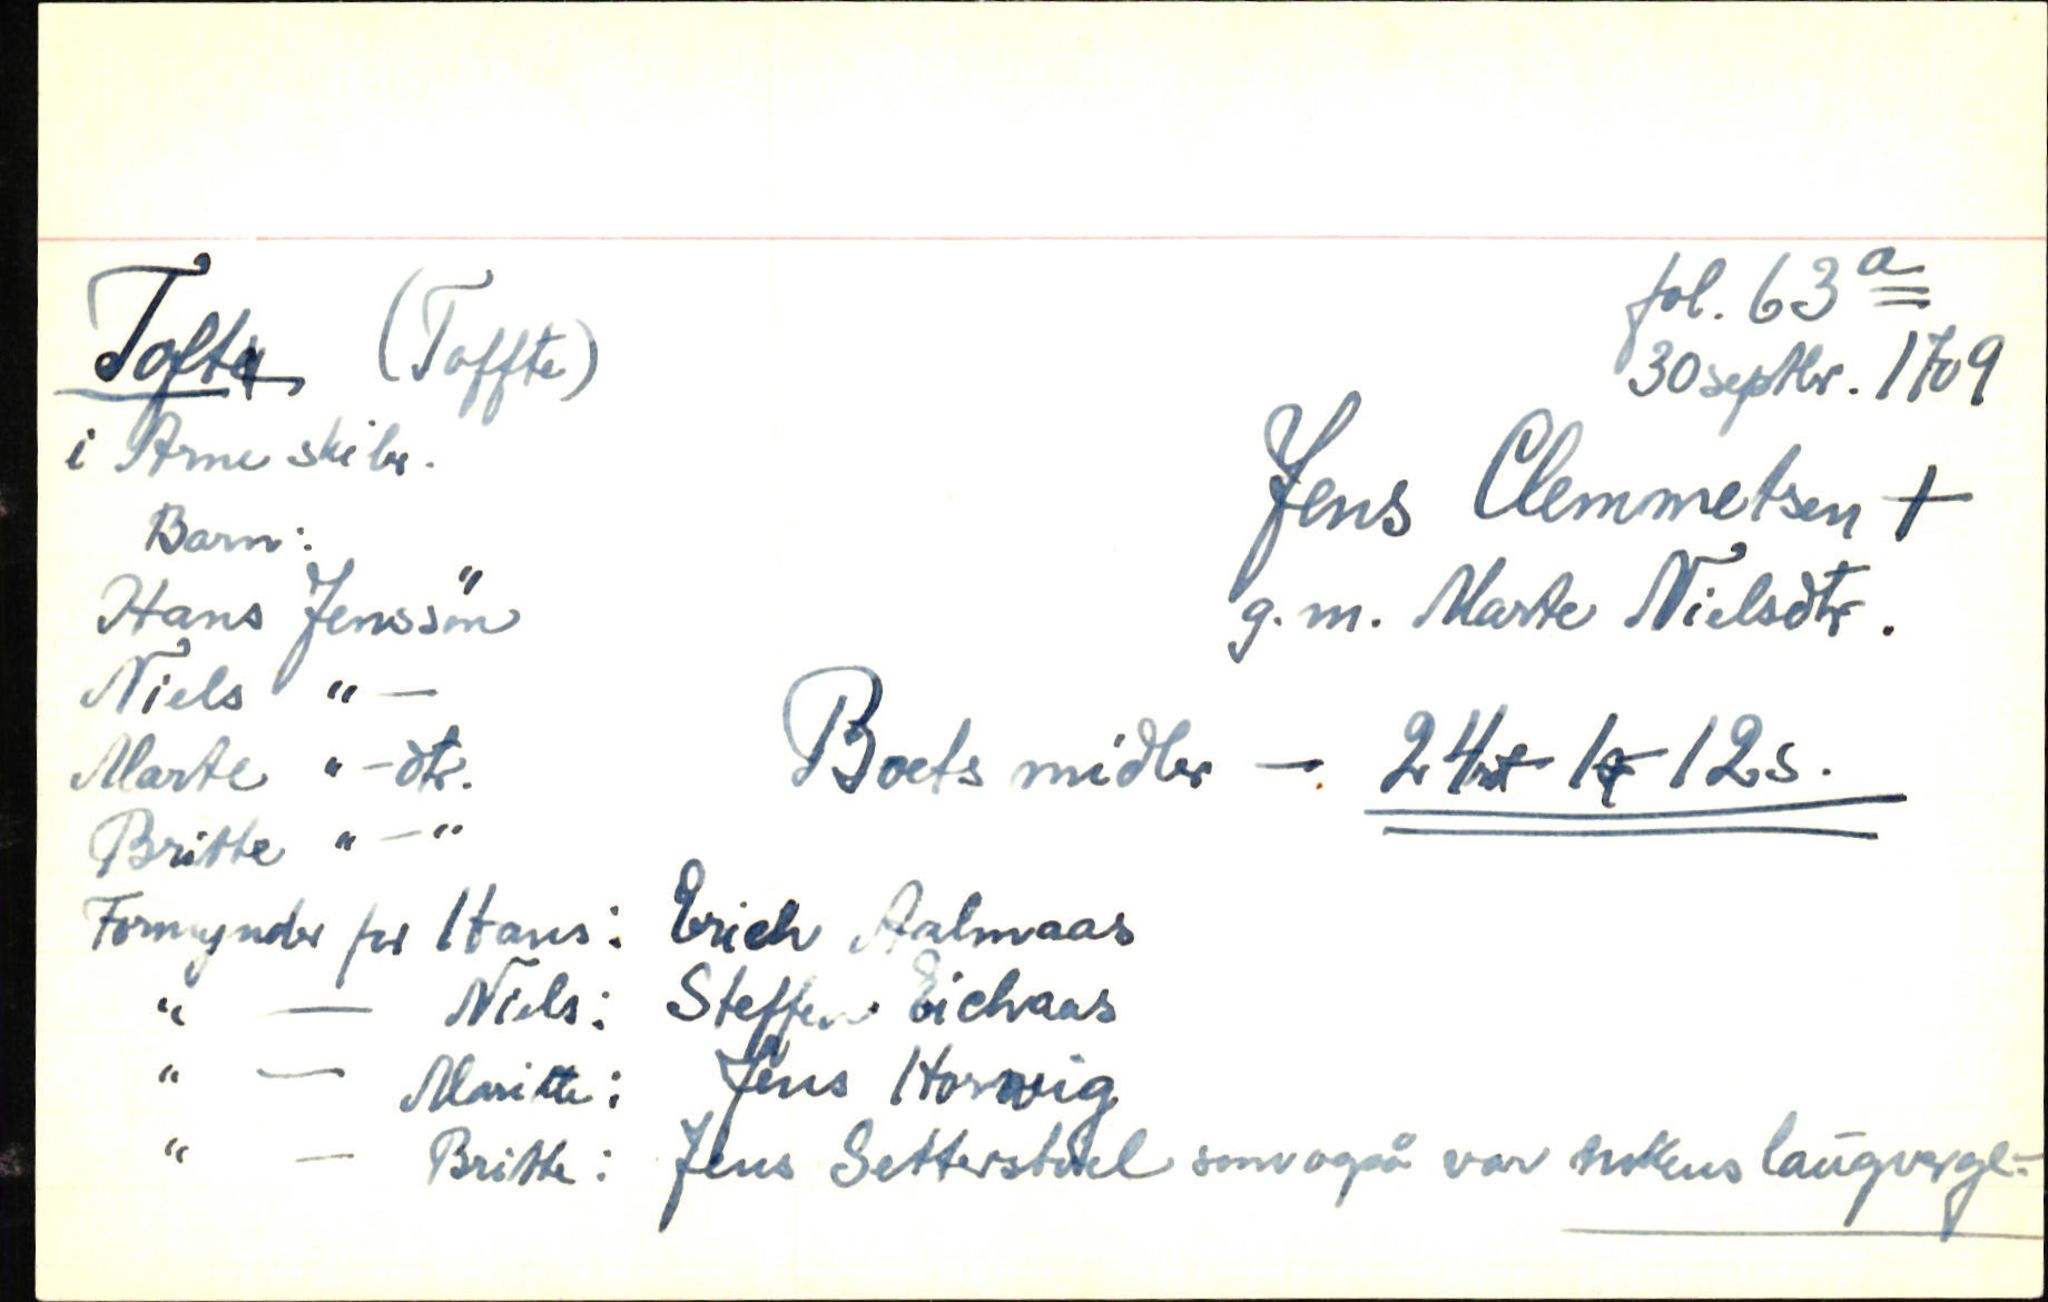 Tofte (Toffte)
fol. 63 a
30 septbr. 1709
i Arne skibr.
Jens Clemmetsen +
g. m. Marte Nielsdtr.
Barn:
Hans Jenssön
Niels " —
Marte " - dtr.
Britte " — "
Boets midler — 24 rd 1 q 12 s.
Formynder for Hans: Erich Aalmaas
" — Niels: Steffen Eichaas
" — Maritte: Jens Horwig
" — Britte: Jens Setterstdel som også var enkens laugverge.